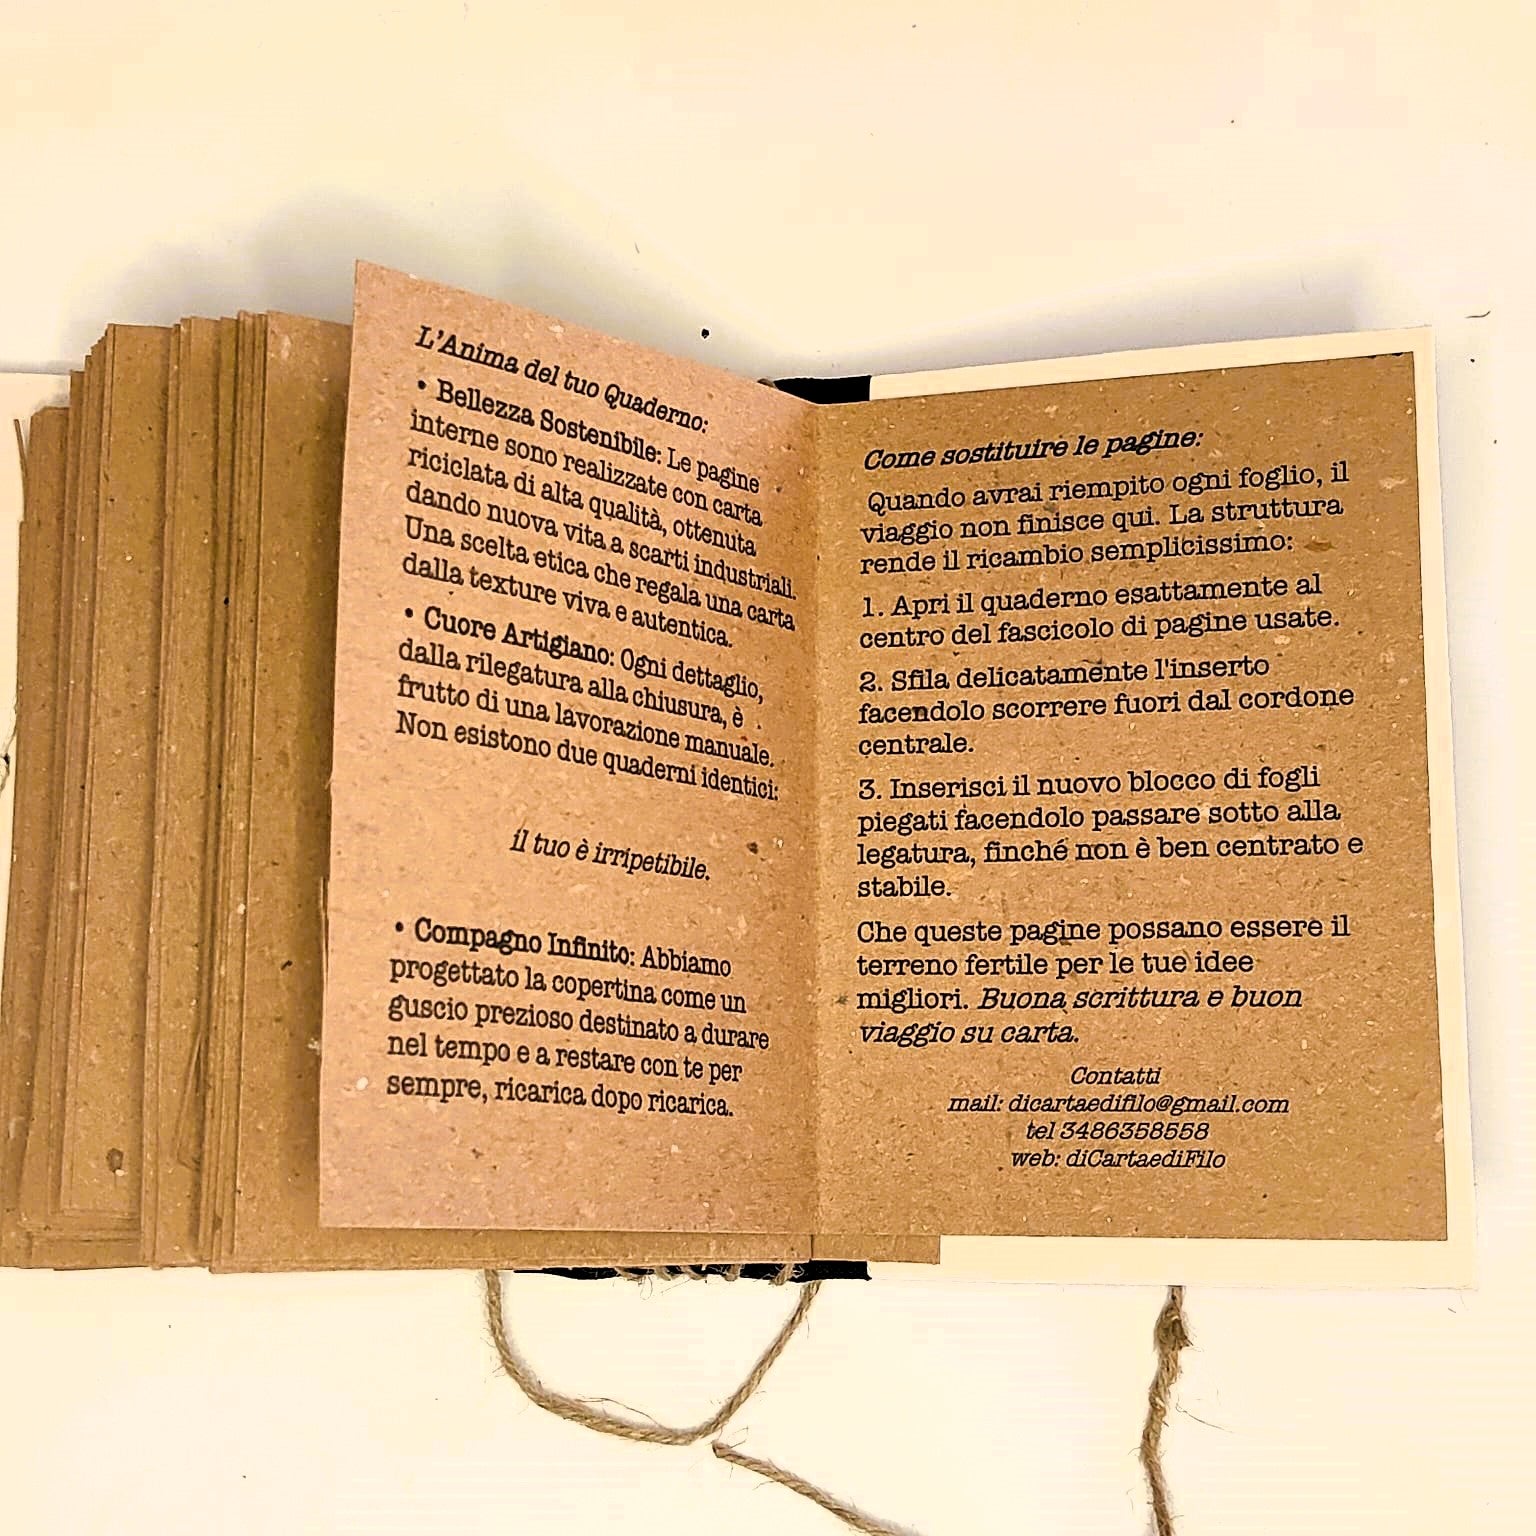 L'Anima del tuo Quaderno:
• Bellezza Sostenibile: Le pagine
interne sono realizzate con carta
riciclata di alta qualità, ottenuta
dando nuova vita a scarti industriali.
Una scelta etica che regala una carta
dalla texture viva e autentica.
• Cuore Artigiano: Ogni dettaglio,
dalla rilegatura alla chiusura, è
frutto di una lavorazione manuale.
Non esistono due quaderni identici:
il tuo è irripetibile.
• Compagno Infinito: Abbiamo
progettato la copertina come un
guscio prezioso destinato a durare
nel tempo e a restare con te per
sempre, ricarica dopo ricarica.
Come sostituire le pagine:
Quando avrai riempito ogni foglio, il
viaggio non finisce qui. La struttura
rende il ricambio semplicissimo:
1. Apri il quaderno esattamente al
centro del fascicolo di pagine usate.
2. Sfila delicatamente l'inserto
facendolo scorrere fuori dal cordone
centrale.
3. Inserisci il nuovo blocco di fogli
piegati facendolo passare sotto alla
legatura, finché non è ben centrato e
stabile.
Che queste pagine possano essere il
terreno fertile per le tue idee
migliori. Buona scrittura e buon
viaggio su carta.
Contatti
mail: dicartaedifilo@gmail.com
tel 3486358558
web: diCartaediFilo